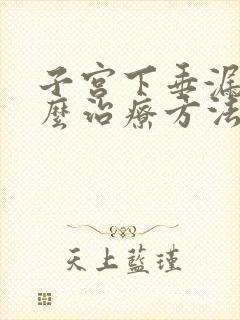 子宮下垂漏
麼治療方法
天上藍瑾